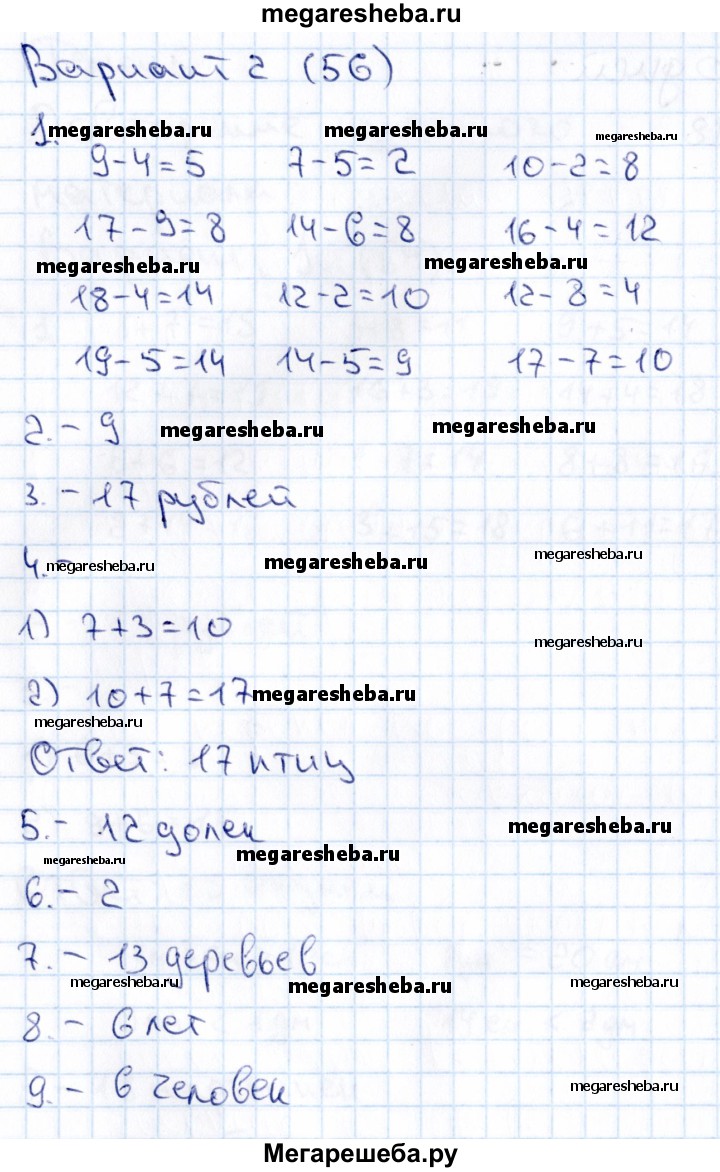 megaresheba.ru
Вариант 2 (56)
1. megaresheba.ru megaresheba.ru megaresheba.ru
9-4=5 7-5=2 10-2=8
17-9=8 14-6=8 16-4=12
megaresheba.ru megaresheba.ru
18-4=14 12-2=10 12-8=4
19-5=14 14-5=9 17-7=10
2. - 9 megaresheba.ru megaresheba.ru
3. - 17 рублей
4. - megaresheba.ru megaresheba.ru megaresheba.ru
1) 7+3=10 megaresheba.ru
2) 10+7=17 megaresheba.ru
megaresheba.ru
Ответ: 17 птиц
5. - 12 долек megaresheba.ru
megaresheba.ru megaresheba.ru
6. - 2
7. - 13 деревьев
megaresheba.ru megaresheba.ru megaresheba.ru
8. - 6 лет
9. - 6 человек megaresheba.ru
Мегарешеба.ру